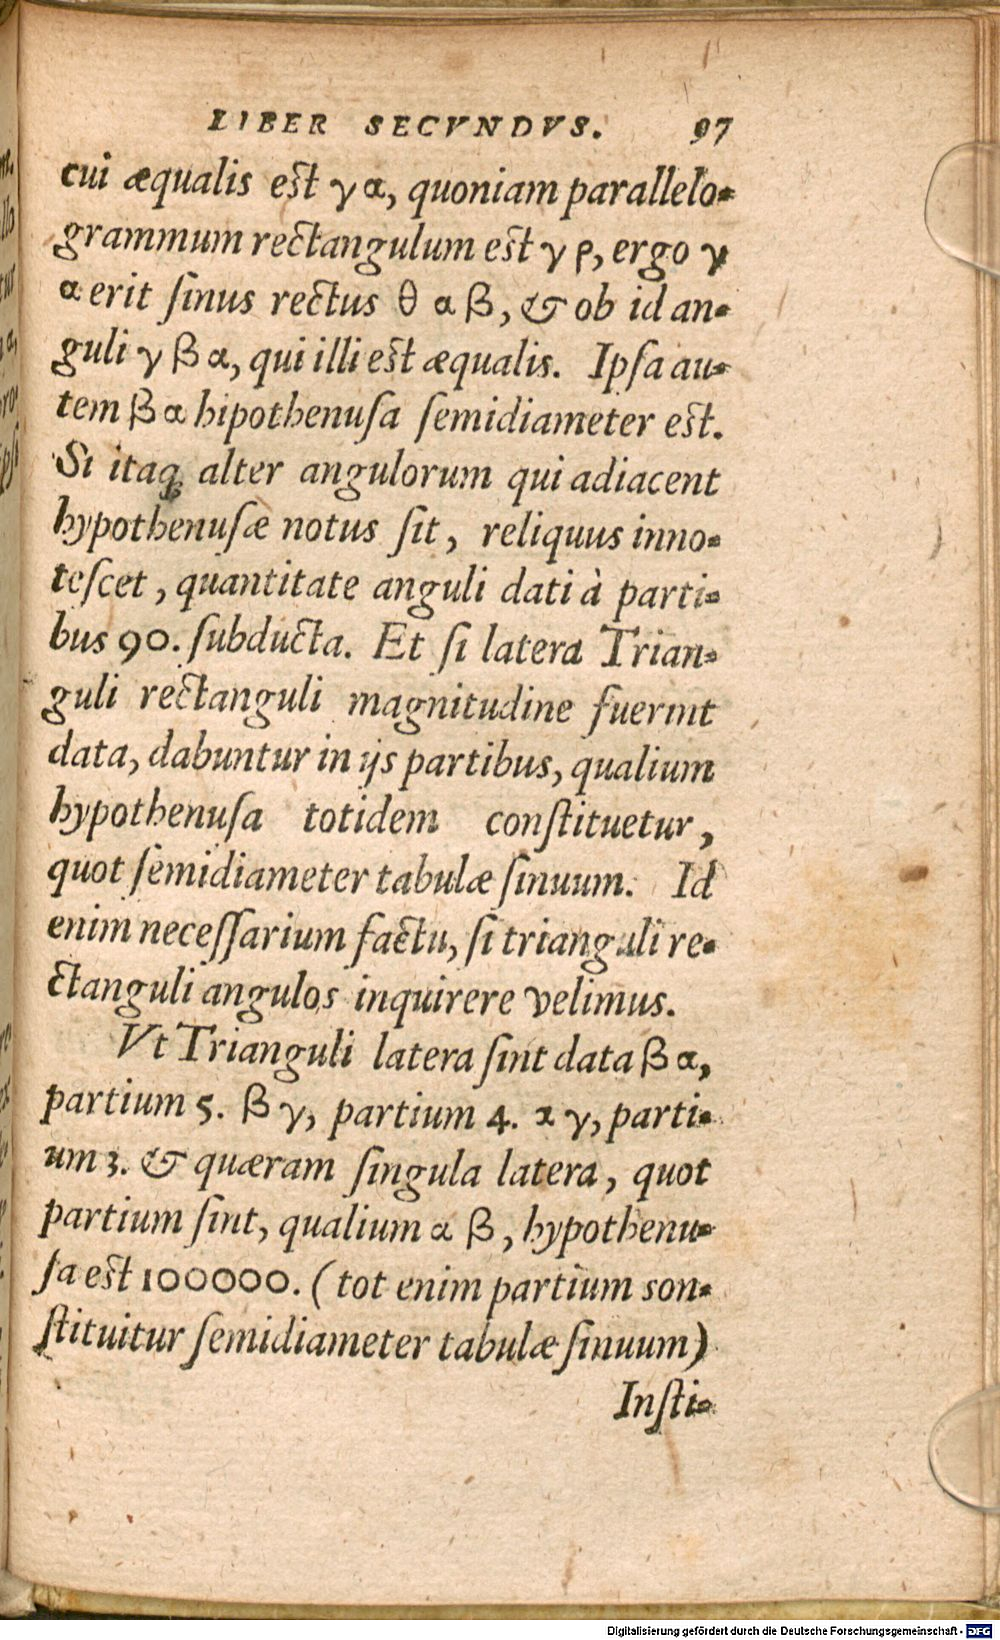 LIBER SECVNDVS. 97
cui æqualis est γ α, quoniam parallelo-
grammum rectangulum est γ ρ, ergo γ
α erit sinus rectus θ α β, & ob id an-
guli γ β α, qui illi est æqualis. Ipsa au-
tem β α hipothenusa semidiameter est.
Si itaq; alter angulorum qui adiacent
hypothenusæ notus sit, reliquus inno-
tescet, quantitate anguli dati à parti-
bus 90. subducta. Et si latera Trian-
guli rectanguli magnitudine fuerint
data, dabuntur in ijs partibus, qualium
hypothenusa totidem constituetur,
quot semidiameter tabulæ sinuum. Id
enim necessarium factu, si trianguli re-
ctanguli angulos inquirere velimus.
Vt Trianguli latera sint data β α,
partium 5. β γ, partium 4. α γ, parti-
um 3. & quæram singula latera, quot
partium sint, qualium α β, hypothenu-
sa est 100000. (tot enim partium son-
stituitur semidiameter tabulæ sinuum)
Insti-
Digitalisierung gefördert durch die Deutsche Forschungsgemeinschaft - DFG